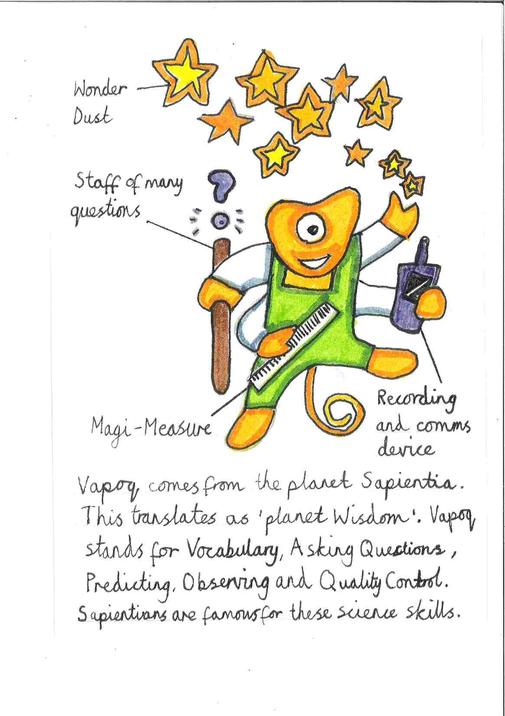 Wonder
Dust
Staff of many
questions
Magi-Measure
Recording
and comms
device
Vapoq comes from the planet Sapientia.
This translates as 'planet Wisdom'. Vapoq
stands for Vocabulary, Asking Questions,
Predicting, Observing and Quality Control.
Sapientians are famous for these science skills.